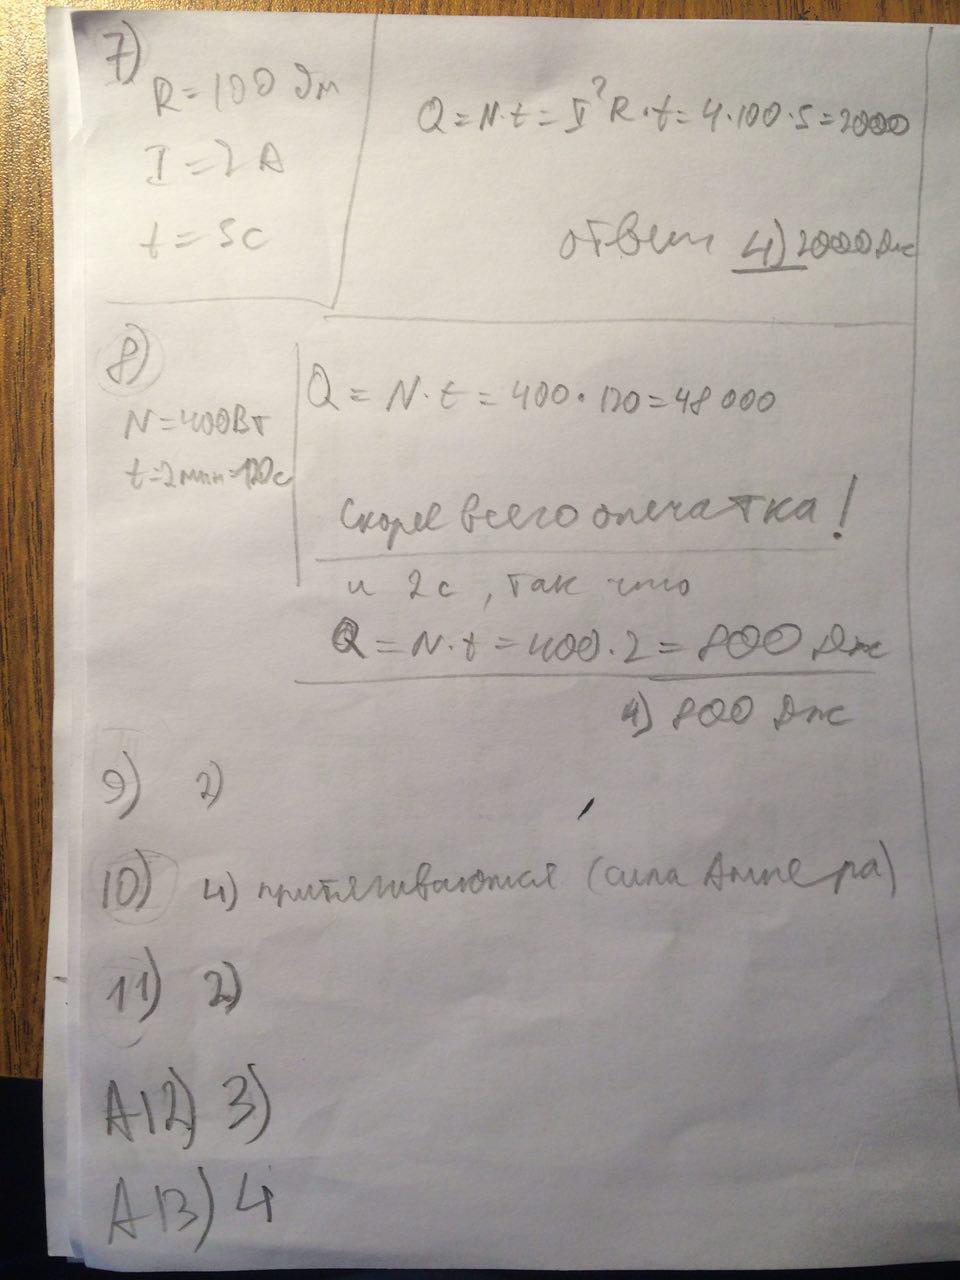 7)
R=100 Ом
I=2А
t=5с
Q=N·t=I²R·t=4·100·5=2000
ответ 4) 2000 Дж
8)
N=400Вт
t=2мин=120с
Q=N·t=400·120=48000
Скорее всего опечатка!
и 2с, так что
Q=N·t=400·2=800 Дж
4) 800 Дж
9) 2)
10) 4) притягиваются (сила Ампера)
11) 2)
А12) 3)
А13) 4